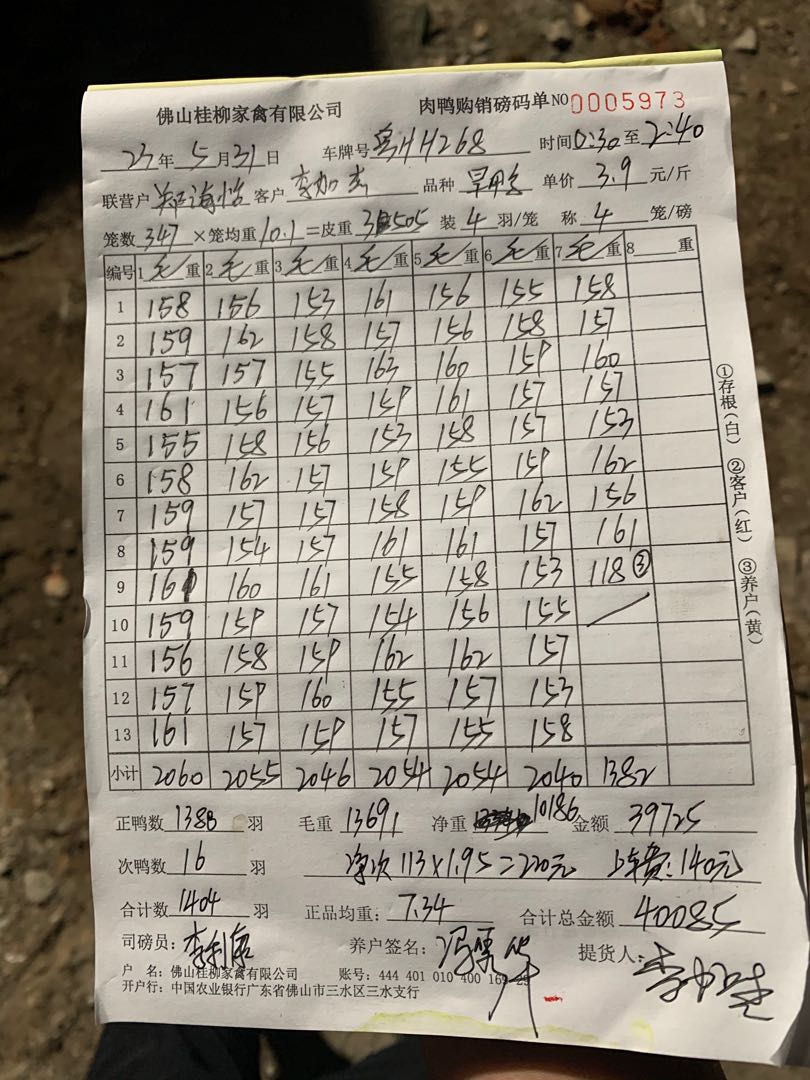 佛山桂柳家禽有限公司 肉鸭购销磅码单 NO 0005973
23年 5月31日 车牌号 粤 H268 时间 0:30 至 2:40
联营户 郑海怡 客户 李加 品种 单价 3.9 元/斤
笼数 347 ×笼均重 10.1 =皮重 3505 装 4 羽/笼 称 4 笼/磅
编号 1 毛 重 2 毛 重 3 毛 重 4 毛 重 5 毛 重 6 毛 重 7 毛 重 8 重
1 158 156 153 161 156 155 158
2 159 162 158 157 156 158 157
3 157 157 155 163 160 159 160
4 161 156 157 159 161 157 157
5 155 158 156 153 158 157 153
6 158 162 157 159 155 159 162
7 159 157 157 158 159 162 156
8 159 154 157 161 161 157 161
9 161 160 161 155 158 153 118 ③
10 159 159 157 154 156 155 /
11 156 158 159 162 162 157
12 157 159 160 155 157 153
13 161 157 159 157 155 158
小计 2060 2055 2046 2054 2054 2040 1382
①存根(白) ②客户(红) ③养户(黄)
正鸭数 1388 羽 毛重 13691 净重 10186 金额 39725
次鸭数 16 羽 净次 113×1.95=220元 上车费:140元
合计数 1404 羽 正品均重: 7.34 合计总金额 40085
司磅员: 李利 养户签名: 冯 提货人: 李加
户 名: 佛山桂柳家禽有限公司 账号: 444 401 010 400 169
开户行: 中国农业银行广东省佛山市三水区三水支行